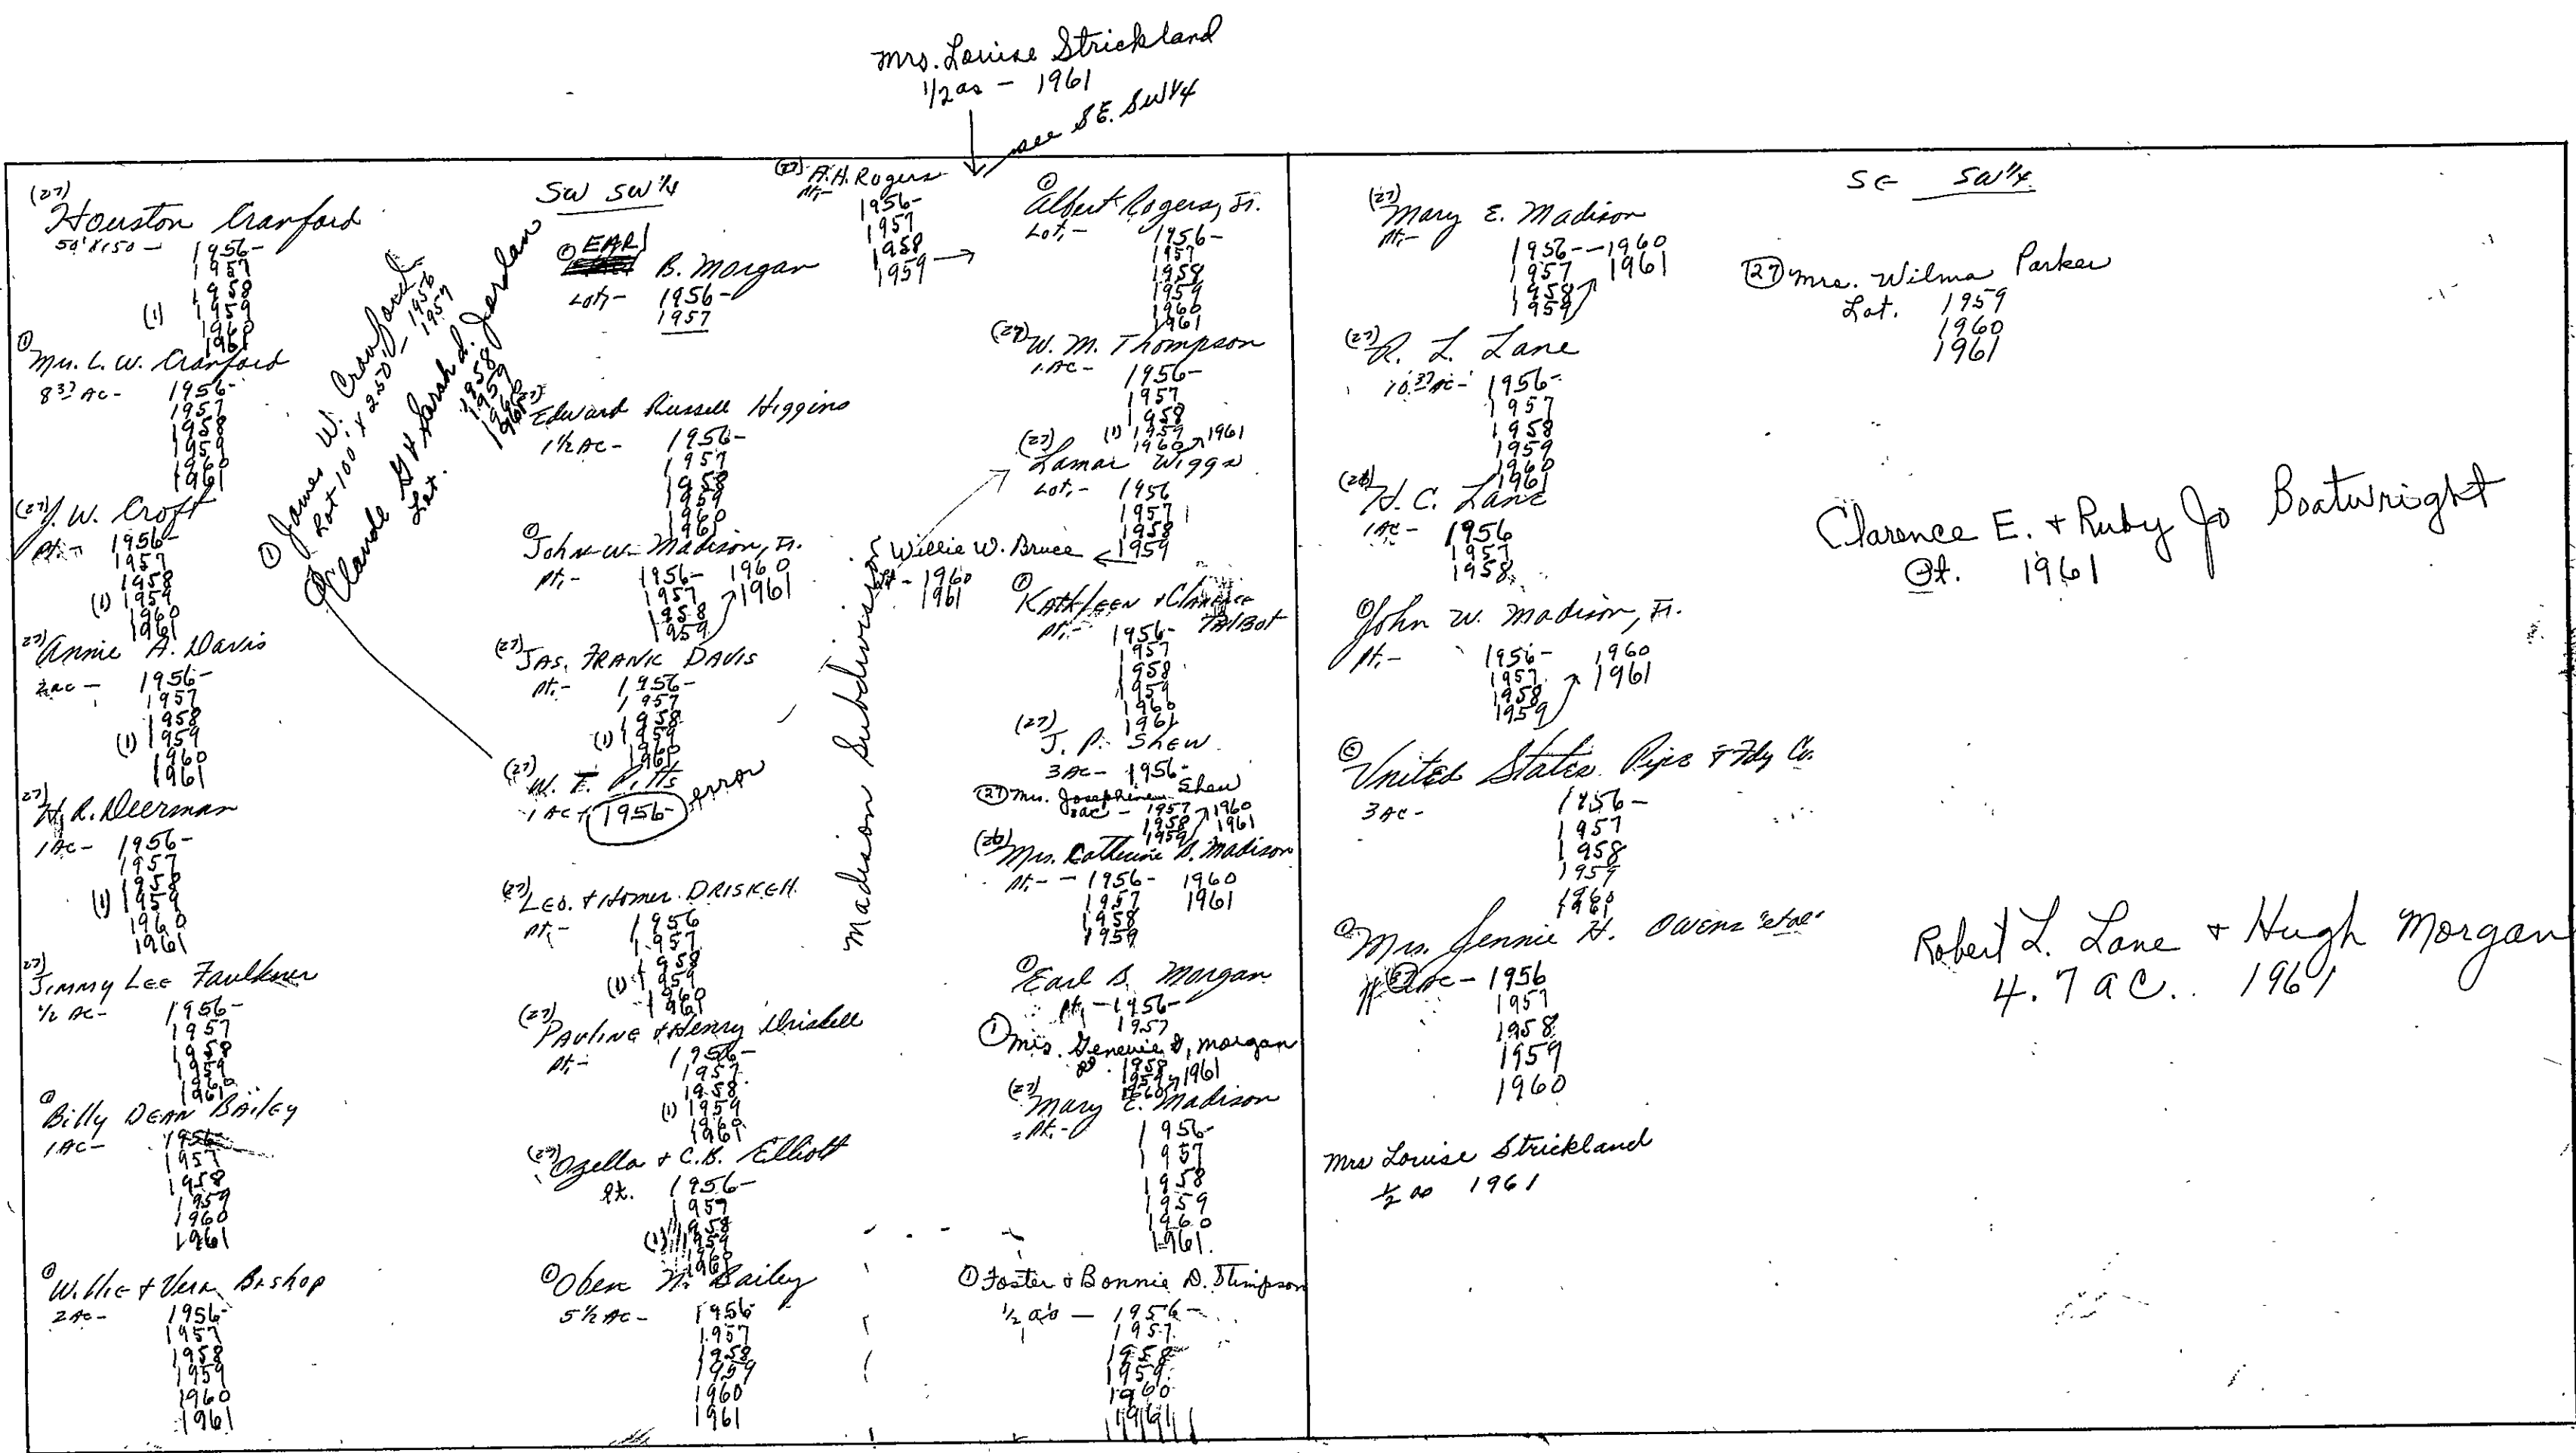 Mrs. Louise Strickland
1/2 ac - 1961
see SE. SW 1/4
SW SW 1/4
(27)
Houston Cranford
50' X 150 - 1956-
1957
1958
(1) 1959
1960
1961
(1)
Mrs. L. W. Cranford
8 37 AC- 1956-
1957
1958
1959
1960
1961
(27)
J. W. Croft
Pt.- 1956-
1957
1958
(1) 1959
1960
1961
27)
Annie A. Davis
ac - 1956-
1957
1958
(1) 1959
1960
1961
27)
H. R. Deerman
1 AC- 1956-
1957
1958
(1) 1959
1960
1961
27)
Jimmy Lee Faulkner
1/2 AC- 1956-
1957
1958
1959
1960
1961
(1)
Billy Dean Bailey
1 AC- 1956-
1957
1958
1959
1960
1961
(1)
Willie + Vera Bishop
2 AC- 1956-
1957
1958
1959
1960
1961
(1) James W. Crawford
Lot 100' X 250' - 1956
1957
(1) Claude G. + Sarah d.
Lot. 1958
1959
1960
1961
(1) EARl B. Morgan
Lot,- 1956-
1957
(27)
Edward Russell Higgins
1 1/2 AC- 1956-
1957
1958
1959
1960
1961
(1)
John W. Madison, Jr.
Pt,- 1956- 1960
1957 1961
1958
1959
(27)
JAS. FRANK DAVIS
Pt,- 1956-
1957
1958
(1) 1959
1960
1961
(27)
W. E. Pitts
1 AC- 1956- error
(27)
Leo. + Homer DRISKELL
Pt,- 1956
1957
1958
(1) 1959
1960
1961
(27)
PAULINE + Henry Driskell
Pt,- 1956-
1957
1958
(1) 1959
1960
1961
(27)
Ozella + C.B. Elliott
Pt. 1956-
1957
1958
(1) 1959
1960
1961
(1)
Oben N. Bailey
5 1/2 AC- 1956-
1957
1958
1959
1960
1961
Madison Subdivision
(27) A.H. Rogers
Pt,- 1956-
1957
1958
1959
(1)
Albert Rogers, Jr.
Lot,- 1956-
1957
1958
1959
1960
1961
(27)
W. M. Thompson
1 AC- 1956-
1957
1958
(1) 1959
1960 1961
(27)
Lamar Wiggs
Lot,- 1956
1957
1958
1959
Willie W. Bruce
1960
1961
(1)
KATHLEEN + Clarence
TAlBot
Pt,- 1956-
1957
1958
1959
1960
1961
(27)
J. P. Shew
3 AC- 1956-
(27) Mrs. Josephine Shew
3ac - 1957 1960
1958 1961
1959
(26)
Mrs. Catherine B. Madison
Pt,- - 1956- 1960
1957 1961
1958
1959
(1)
Earl B. Morgan
Pt,- 1956-
1957
(1) Mrs. Genevie G, Morgan
pt. 1958
1959 1961
1960
(27)
Mary E. Madison
Pt,- 1956-
1957
1958
1959
1960
1961
(1) Foster + Bonnie D. Stimpson
1/2 ac - 1956-
1957
1958
1959
1960
1961
SE SW 1/4
(27)
Mary E. Madison
Pt,- 1956- -1960
1957 1961
1958
1959
(27)
R. L. Lane
10.37 AC- 1956-
1957
1958
1959
1960
1961
(26)
H. C. Lane
1 AC- 1956
1957
1958
(1)
John W. Madison, Jr.
Pt,- 1956- 1960
1957 1961
1958
1959
(1)
United States Pipe + Fdy Co.
3 AC- 1956-
1957
1958
1959
1960
1961
(1)
Mrs. Jennie H. Owens etal
AC - 1956
1957
1958
1959
1960
Mrs Louise Strickland
1/2 ac 1961
(27) Mrs. Wilma Parker
Lot. 1959
1960
1961
Clarence E. + Ruby Jo Boatwright
Pt. 1961
Robert L. Lane + Hugh Morgan
4.7 ac. 1961